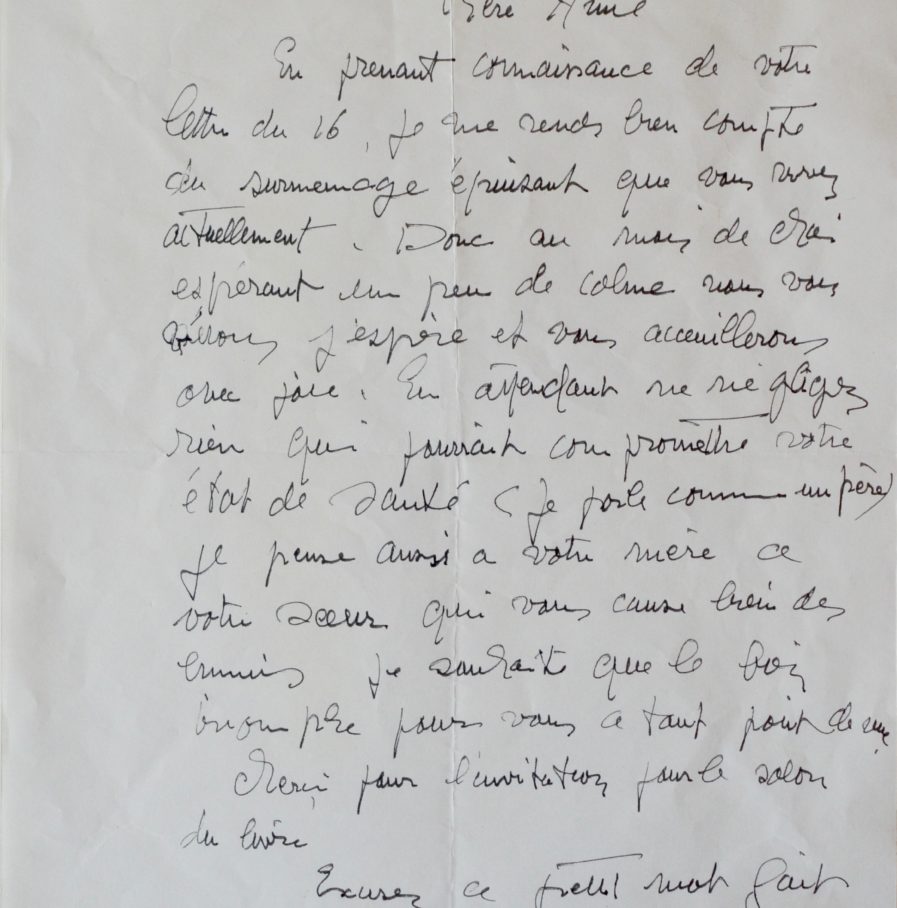 Chère Anne
En prenant connaissance de votre
lettre du 16, je me rends bien compte
du surmenage épuisant que vous vivez
actuellement. Donc au mois de Mai
espérant un peu de calme nous vous
verrons j'espère et vous acceuillerons
avec joie. En attendant ne négligez
rien qui pourrait compromettre votre
état de santé (je parle comme un père)
Je pense aussi a votre mère a
votre soeur qui vous cause bien des
ennuis je souhaite que le bon
triomphe pour vous a tout point de vue
Merci pour l'invitation pour le salon
du livre
Excusez ce petit mot fait